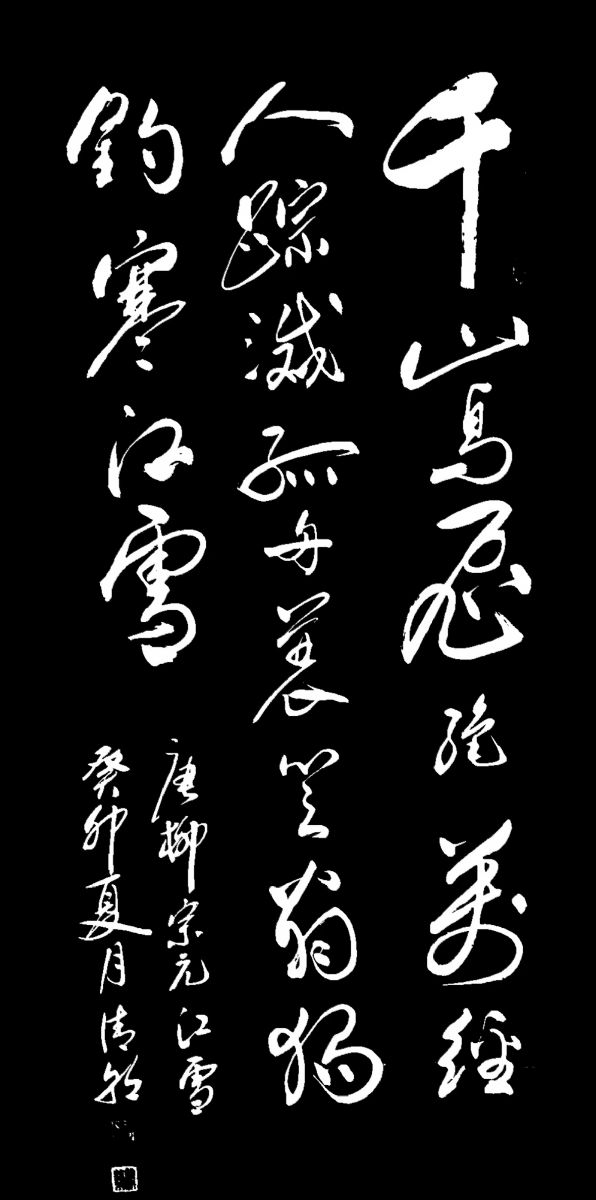 千山鳥飛絕萬徑
人踪滅孤舟蓑笠翁獨
釣寒江雪
唐柳宗元江雪
癸卯夏月清